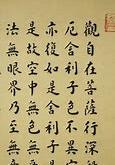 觀自在菩薩行深
厄舍利子色不異
亦復如是舍利子
是故空中無色無
法無眼界乃至無